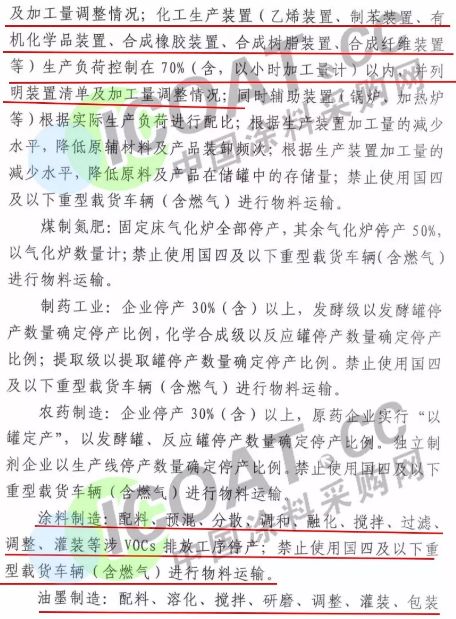 及加工量调整情况；化工生产装置（乙烯装置、制苯装置、有
机化学品装置、合成橡胶装置、合成树脂装置、合成纤维装置
等）生产负荷控制在70%（含，以小时加工量计）以内，并列
明装置清单及加工量调整情况；同时辅助装置（锅炉、加热炉
等）根据实际生产负荷进行配比；根据生产装置加工量的减少
水平，降低原辅材料及产品装卸频次；根据生产装置加工量的
减少水平，降低原料及产品在储罐中的存储量；禁止使用国四
及以下重型载货车辆（含燃气）进行物料运输。
煤制氮肥：固定床气化炉全部停产，其余气化炉停产50%，
以气化炉数量计；禁止使用国四及以下重型载货车辆（含燃气）
进行物料运输。
制药工业：企业停产30%（含）以上，发酵级以发酵罐停
产数量确定停产比例，化学合成级以反应罐停产数量确定停产
比例；提取级以提取罐停产数量确定停产比例。禁止使用国四
及以下重型载货车辆（含燃气）进行物料运输。
农药制造：企业停产30%（含）以上，原药企业实行“以
罐定产”，以发酵罐、反应罐停产数量确定停产比例。独立制
剂企业以生产线停产数量确定停产比例。禁止使用国四及以下
重型载货车辆（含燃气）进行物料运输。
涂料制造：配料、预混、分散、调和、融化、搅拌、过滤、
调整、灌装等涉VOCs排放工序停产；禁止使用国四及以下重
型载货车辆（含燃气）进行物料运输。
油墨制造：配料、溶化、搅拌、研磨、调整、灌装、包装
ICOAT.CC
中国涂料采购网
ICOAT.CC
中国涂料采购网